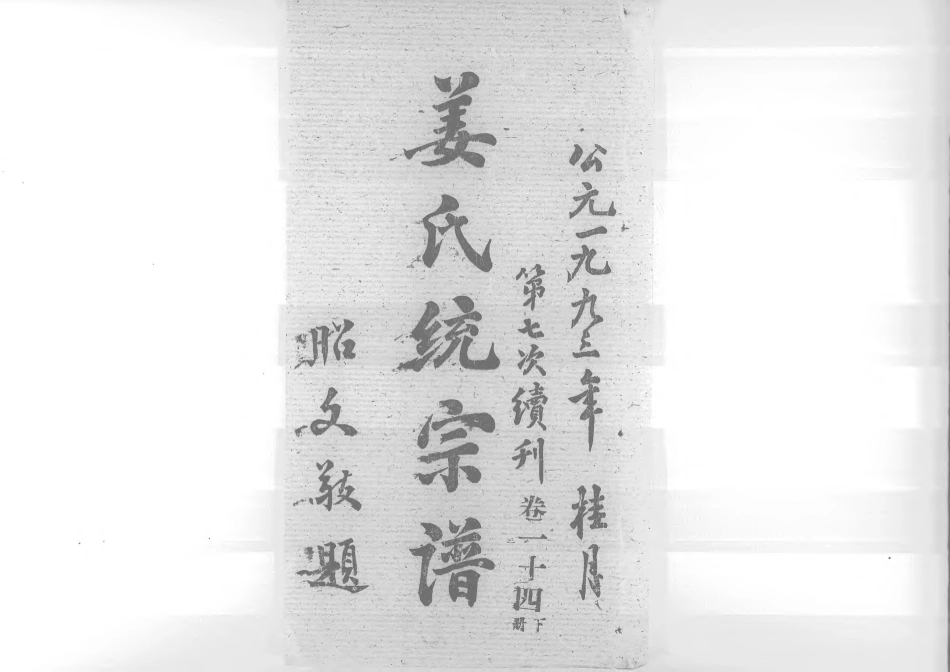 公元一九九三年 桂月
第七次續刊 卷一十四 下冊
姜氏统宗谱
昭文敬題